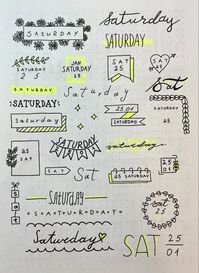 Saturday
SATURDAY
SATURDAY
SATURDAY
2 5
JAN
SATURDAY
25
SAT
25
Sat
SATURDAY
Saturday
SATURDAY
25
01
SATURDAY
SATURDAY
SATURDAY
Saturday
25
SAT
Sat
SATURDAY
25
s
a
t
SATURDAY
sat
25
S A T U R D A Y
Saturday
SAT
25
01